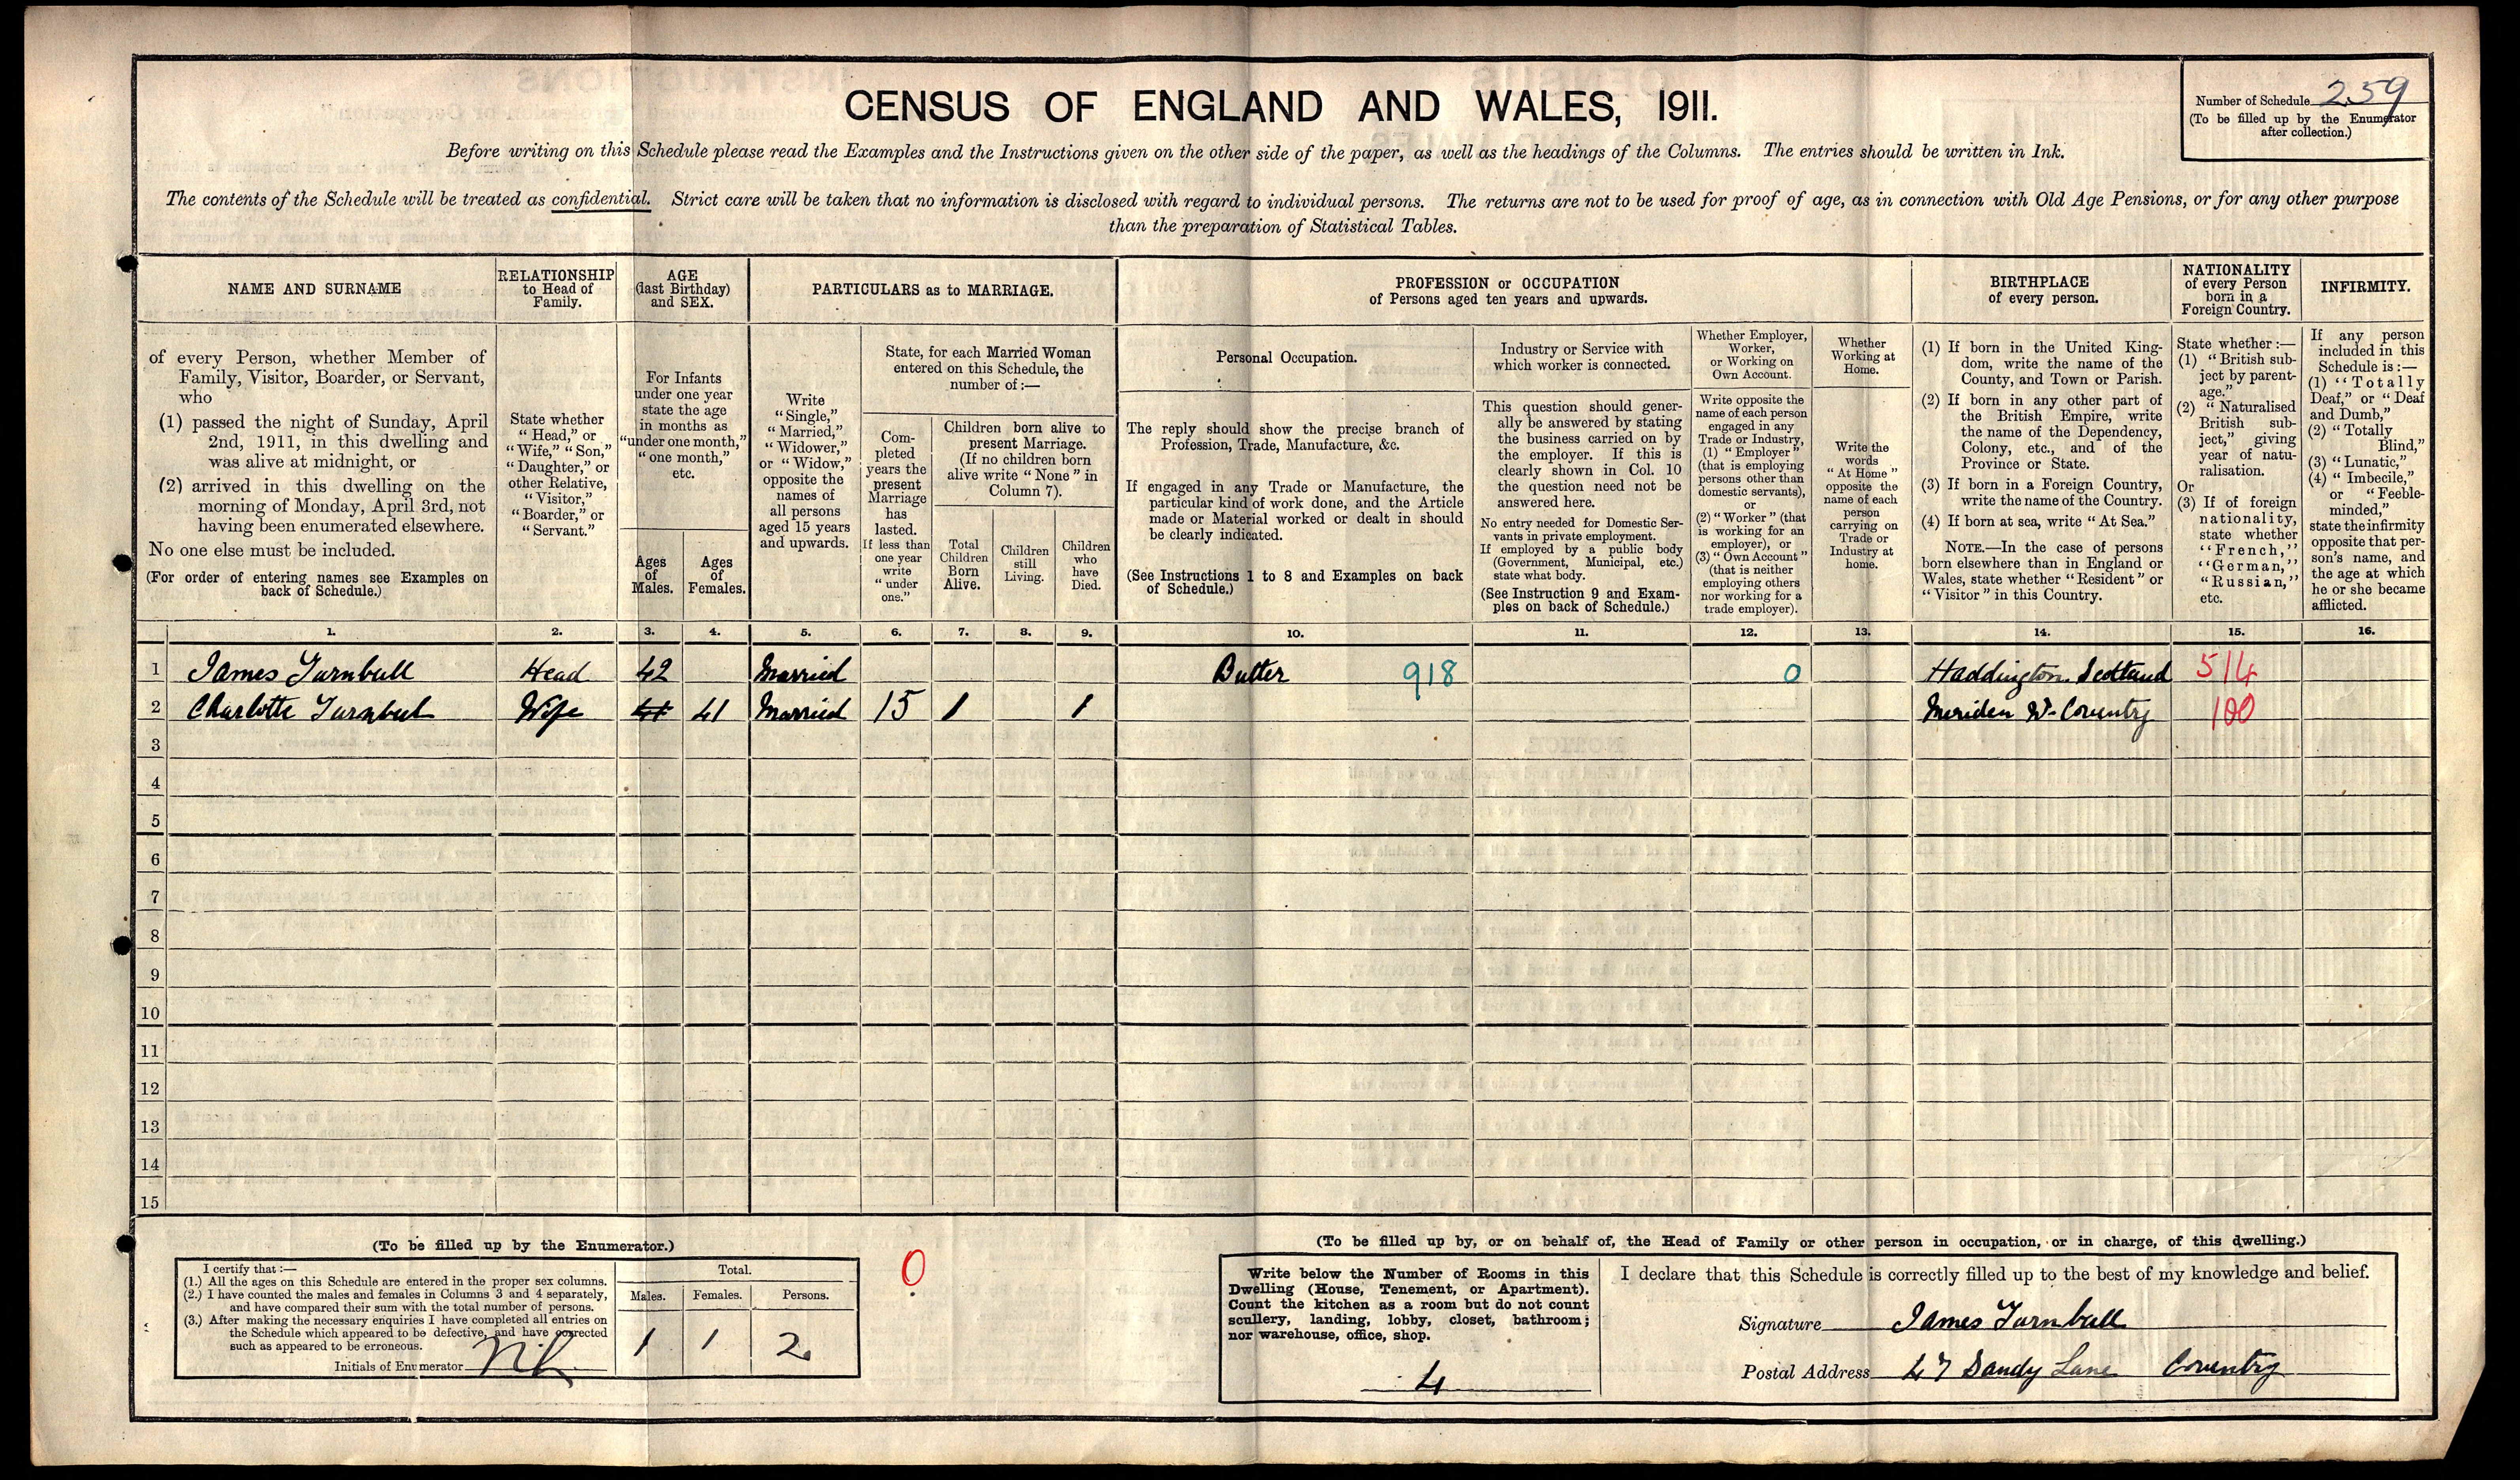 CENSUS OF ENGLAND AND WALES, 1911.
Number of Schedule 259
(To be filled up by the Enumerator
after collection.)
Before writing on this Schedule please read the Examples and the Instructions given on the other side of the paper, as well as the headings of the Columns. The entries should be written in Ink.
The contents of the Schedule will be treated as confidential. Strict care will be taken that no information is disclosed with regard to individual persons. The returns are not to be used for proof of age, as in connection with Old Age Pensions, or for any other purpose
than the preparation of Statistical Tables.
NAME AND SURNAME
of every Person, whether Member of
Family, Visitor, Boarder, or Servant,
who
(1) passed the night of Sunday, April
2nd, 1911, in this dwelling and
was alive at midnight, or
(2) arrived in this dwelling on the
morning of Monday, April 3rd, not
having been enumerated elsewhere.
No one else must be included.
(For order of entering names see Examples on
back of Schedule.)
RELATIONSHIP
to Head of
Family.
State whether
"Head," or
"Wife," "Son,"
"Daughter," or
other Relative,
"Visitor,"
"Boarder," or
"Servant."
AGE
(last Birthday)
and SEX.
For Infants
under one year
state the age
in months as
"under one month,"
"one month,"
etc.
Ages
of
Males.
Ages
of
Females.
PARTICULARS as to MARRIAGE.
Write
"Single,"
"Married,"
"Widower,"
or "Widow,"
opposite the
names of
all persons
aged 15 years
and upwards.
State, for each Married Woman
entered on this Schedule, the
number of:—
Com-
pleted
years the
present
Marriage
has
lasted.
If less than
one year
write
"under
one."
Children born alive to
present Marriage.
(If no children born
alive write "None" in
Column 7).
Total
Children
Born
Alive.
Children
still
Living.
Children
who
have
Died.
PROFESSION or OCCUPATION
of Persons aged ten years and upwards.
Personal Occupation.
The reply should show the precise branch of
Profession, Trade, Manufacture, &c.
If engaged in any Trade or Manufacture, the
particular kind of work done, and the Article
made or Material worked or dealt in should
be clearly indicated.
(See Instructions 1 to 8 and Examples on back
of Schedule.)
Industry or Service with
which worker is connected.
This question should gener-
ally be answered by stating
the business carried on by
the employer. If this is
clearly shown in Col. 10
the question need not be
answered here.
No entry needed for Domestic Ser-
vants in private employment.
If employed by a public body
(Government, Municipal, etc.)
state what body.
(See Instruction 9 and Exam-
ples on back of Schedule.)
Whether Employer,
Worker,
or Working on
Own Account.
Write opposite the
name of each person
engaged in any
Trade or Industry,
(1) "Employer"
(that is employing
persons other than
domestic servants),
or
(2) "Worker" (that
is working for an
employer), or
(3) "Own Account"
(that is neither
employing others
nor working for a
trade employer).
Whether
Working at
Home.
Write the
words
"At Home"
opposite the
name of each
person
carrying on
Trade or
Industry at
home.
BIRTHPLACE
of every person.
(1) If born in the United King-
dom, write the name of the
County, and Town or Parish.
(2) If born in any other part of
the British Empire, write
the name of the Dependency,
Colony, etc., and of the
Province or State.
(3) If born in a Foreign Country,
write the name of the Country.
(4) If born at sea, write "At Sea."
NOTE.—In the case of persons
born elsewhere than in England or
Wales, state whether "Resident" or
"Visitor" in this Country.
NATIONALITY
of every Person
born in a
Foreign Country.
State whether:—
(1) "British sub-
ject by parent-
age."
(2) "Naturalised
British sub-
ject," giving
year of natu-
ralisation.
Or
(3) If of foreign
nationality,
state whether
"French,"
"German,"
"Russian,"
etc.
INFIRMITY.
If any person
included in this
Schedule is:—
(1) "Totally
Deaf," or "Deaf
and Dumb,"
(2) "Totally
Blind,"
(3) "Lunatic,"
(4) "Imbecile,"
or "Feeble-
minded,"
state the infirmity
opposite that per-
son's name, and
the age at which
he or she became
afflicted.
1. 2. 3. 4. 5. 6. 7. 8. 9. 10. 11. 12. 13. 14. 15. 16.
1 James Turnbull Head 42 Married Butler 918 0 Haddington Scotland 514
2 Charlotte Turnbull Wife 41 41 Married 15 1 1 Meriden Nr Coventry 100
3
4
5
6
7
8
9
10
11
12
13
14
15
(To be filled up by the Enumerator.)
I certify that:—
(1.) All the ages on this Schedule are entered in the proper sex columns.
(2.) I have counted the males and females in Columns 3 and 4 separately,
and have compared their sum with the total number of persons.
(3.) After making the necessary enquiries I have completed all entries on
the Schedule which appeared to be defective, and have corrected
such as appeared to be erroneous.
Initials of Enumerator
Total.
Males. Females. Persons.
1 1 2
0
(To be filled up by, or on behalf of, the Head of Family or other person in occupation, or in charge, of this dwelling.)
Write below the Number of Rooms in this
Dwelling (House, Tenement, or Apartment).
Count the kitchen as a room but do not count
scullery, landing, lobby, closet, bathroom;
nor warehouse, office, shop.
4
I declare that this Schedule is correctly filled up to the best of my knowledge and belief.
Signature James Turnbull
Postal Address 47 Sandy Lane Coventry